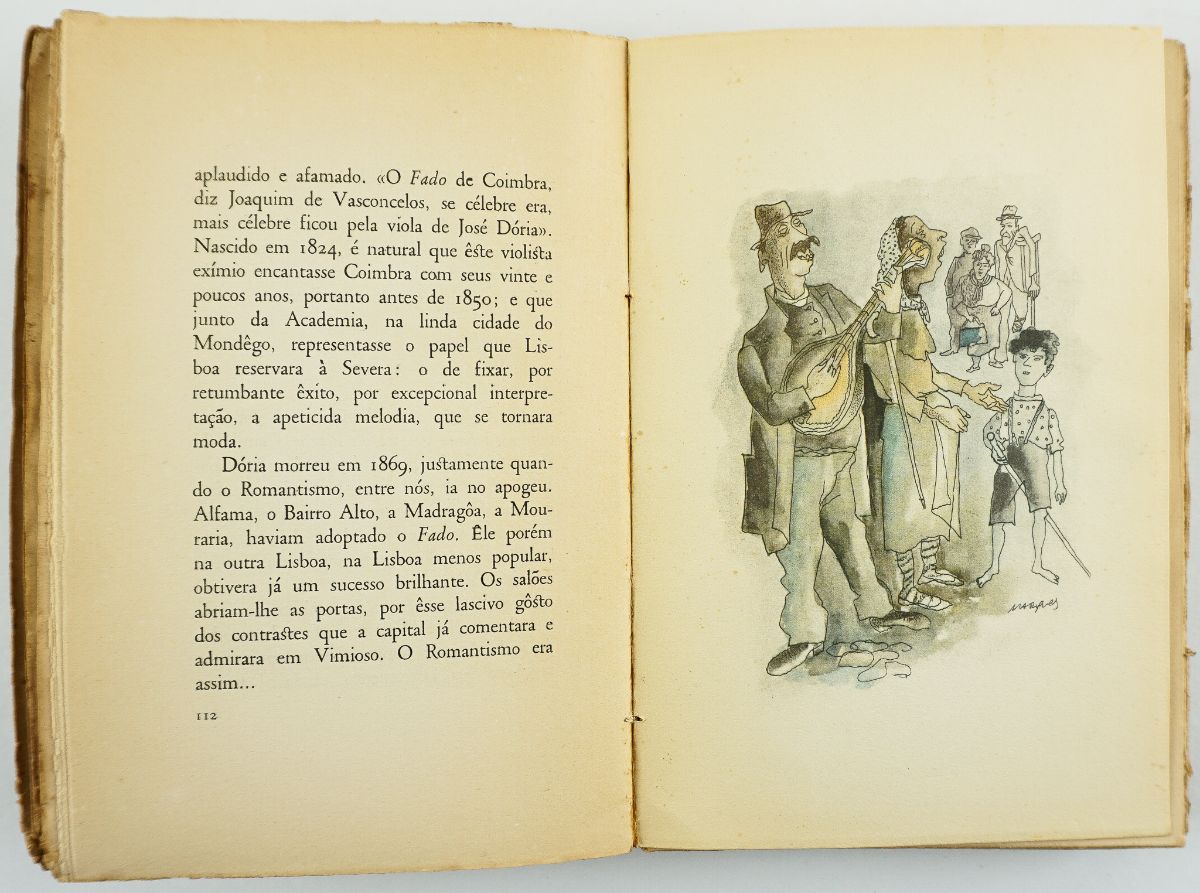 aplaudido e afamado. «O Fado de Coimbra,
diz Joaquim de Vasconcelos, se célebre era,
mais célebre ficou pela viola de José Dória».
Nascido em 1824, é natural que êste violista
exímio encantasse Coimbra com seus vinte e
poucos anos, portanto antes de 1850; e que
junto da Academia, na linda cidade do
Mondêgo, representasse o papel que Lis-
boa reservara à Severa: o de fixar, por
retumbante êxito, por excepcional interpre-
tação, a apeticida melodia, que se tornara
moda.
Dória morreu em 1869, justamente quan-
do o Romantismo, entre nós, ia no apogeu.
Alfama, o Bairro Alto, a Madragôa, a Mou-
raria, haviam adoptado o Fado. Êle porém
na outra Lisboa, na Lisboa menos popular,
obtivera já um sucesso brilhante. Os salões
abriam-lhe as portas, por êsse lascivo gôsto
dos contrastes que a capital já comentara e
admirara em Vimioso. O Romantismo era
assim...
112